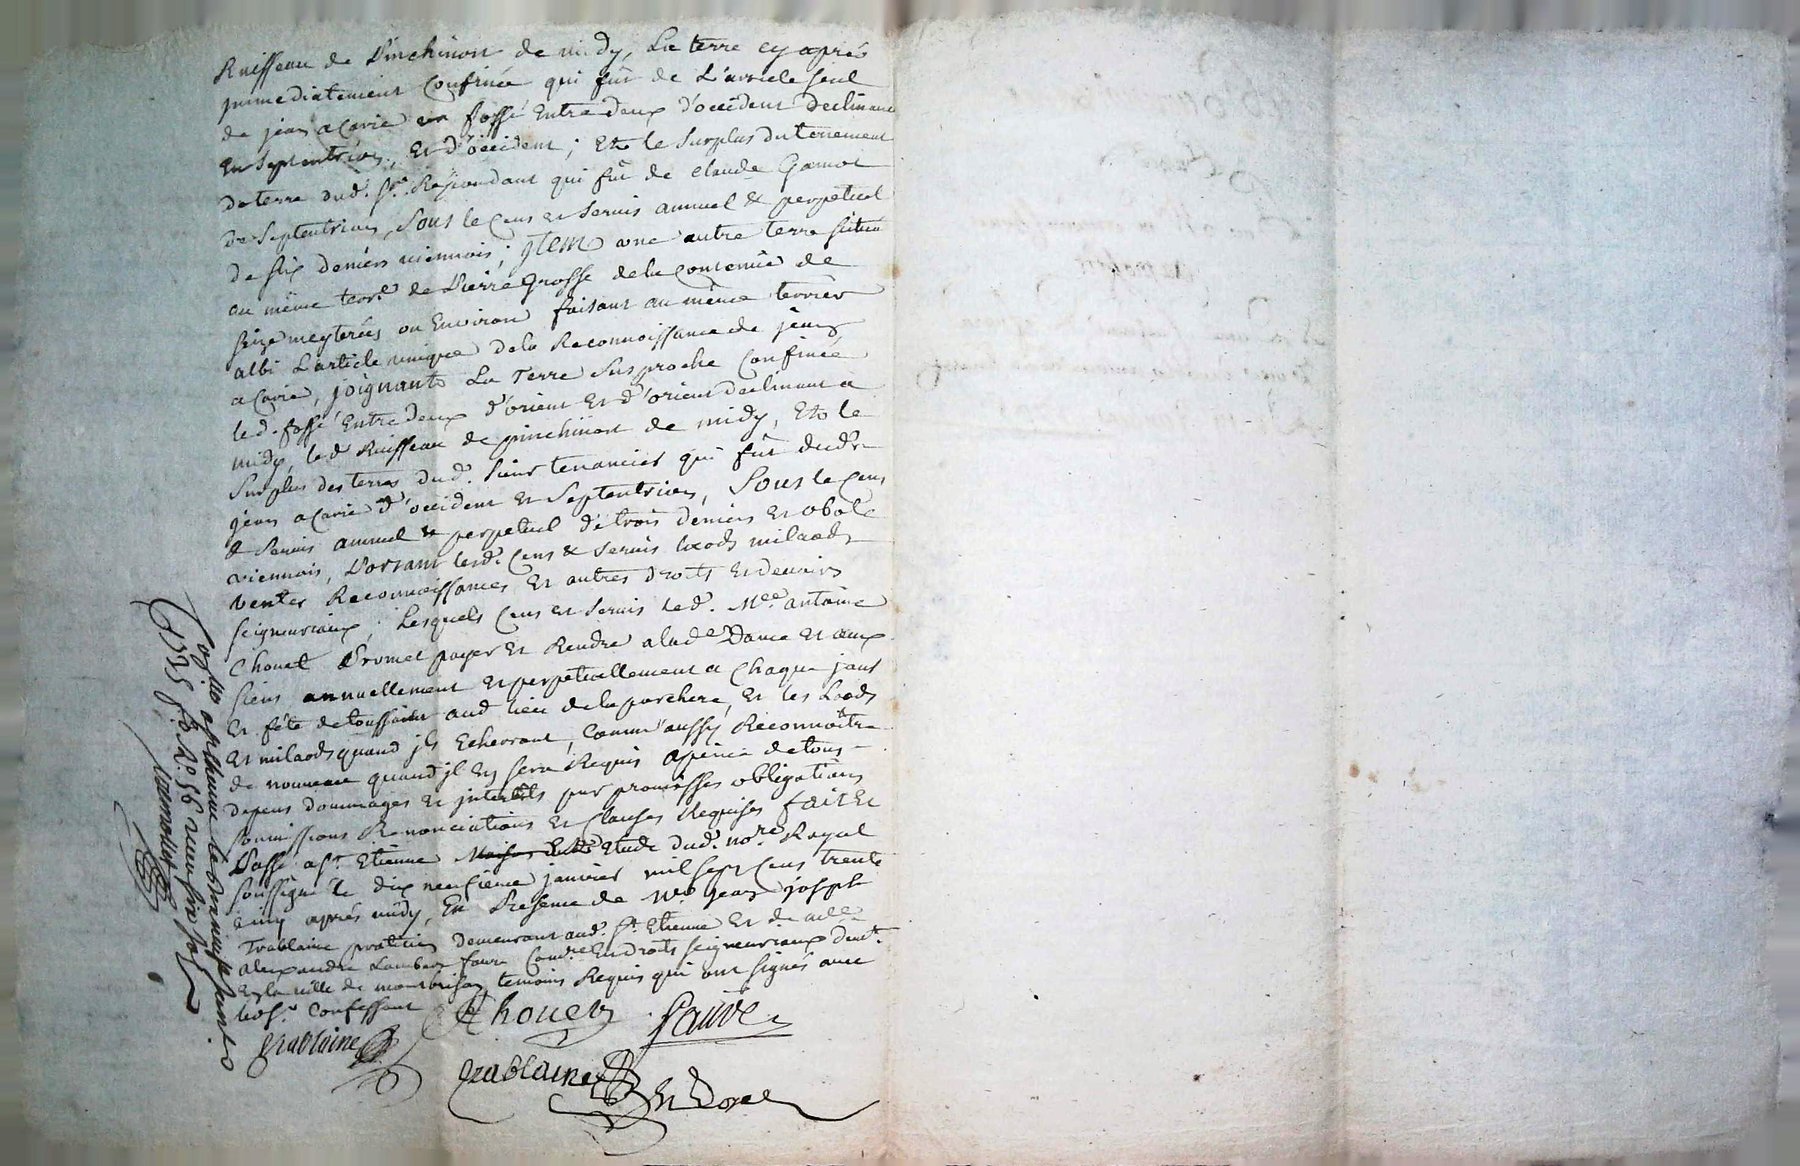 Ruisseau de Pinchinost de midy, La terre cy après
jmmediatement Confinée qui fût de L'article seul
de jean acarie un fossé Entredeux d'occident declinant
En Septentrion, Et d'occident; Et le Surplus du tenement
de terre dud. Sr. Repondant qui fût de claude Gamot
de Septentrion, Sous le Cens et Servis annuel & perpetuel
de six deniers viennois; jtem une autre terre scituée
au même terre. de Pierre Grosse de la Contenüe de
seize meyterées ou Environ faisant au même terrier
albi L'article unique de la Reconnoissance de jean
acarie, joignant La Terre Susproche Confinée
led. fossé Entredeux d'orient Et d'orient declinant à
midy, led. Ruisseau de pinchinost de midy, Et le
Surplus des terres dud. Sieur tenancier qui fût dud.
jean acarie d'occident et Septentrion, Sous le Cens
& Servis annuel & perpetuel de trois deniers et obole
viennois, Portant lesd. Cens & Servis laods milaods
ventes Reconnoissances Et autres droits Et devoirs
seigneuriaux; Lesquels Cens et Servis led. Mre. antoine
Chouet Promet payer et Rendre a lad. Dame et aux
siens annuellement et perpetuellement a Chaque jour
Et fête de toussaint aud. lieu de la porchere, Et les Laods
Et milaods quand jls Echerront, Comm'aussy Reconnoître
de nouveau quand jl En sera Requis apeine de tous
depens dommages et jnterêts par promesses obligations
soumissions Renonciations et Clauses Requises fait Et
Passé a St. Etienne Etude dud. nore. Royal
soussigné le dix neufieme janvier mil sept Cens trente
cinq après midy, En Presence de Mre. jean joseph
Trablaine praticien demeurant aud. St. Etienne Et de
alexandre Lambert faure Comre. En droits seigneuriaux demt.
En la ville de montbrison temoins Requis qui ont signés avec
led. Sr. Confessant
Chouet faure
Trablaine
Trablaine
Et
1735 fo. R